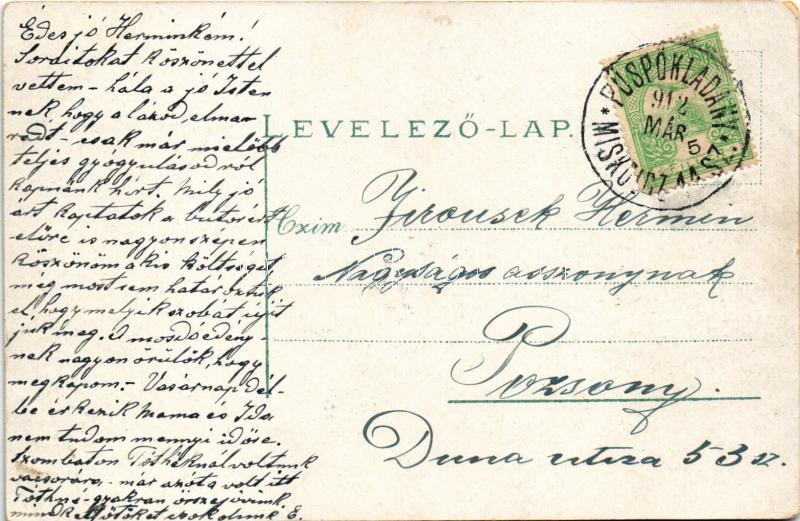 Édes jó Herminkém!
Soraitokat köszönettel
vettem – hála a jó Isten
nek, hogy a lázad elma
radt – csak már mielőbb
teljes gyogyulásod ról
kapnánk hirt. Mily jó
árt kaptatok a butorért
előre is nagyon szépen
köszönöm a kis költséget,
még most sem határoztuk
el, hogy melyik szobát ujit
juk meg. A mosdóedény-
nek nagyon örülök, hogy
megkapom. – Vasárnap dél-
be érkezik Mama és Ida
nem tudom mennyi időre.
Szombaton Tóthéknál voltunk
vacsorára – már azóta volt itt
Tóthné – gyakran összejövünk
mindkettőtöket csokolunk E.
LEVELEZŐ-LAP.
Czim Jirousek Hermin
Nagyságos asszonynak
Pozsony.
Duna utcza 53 sz.
PÜSPÖKLADÁNY
912
MÁR
5
MISKOLCZ